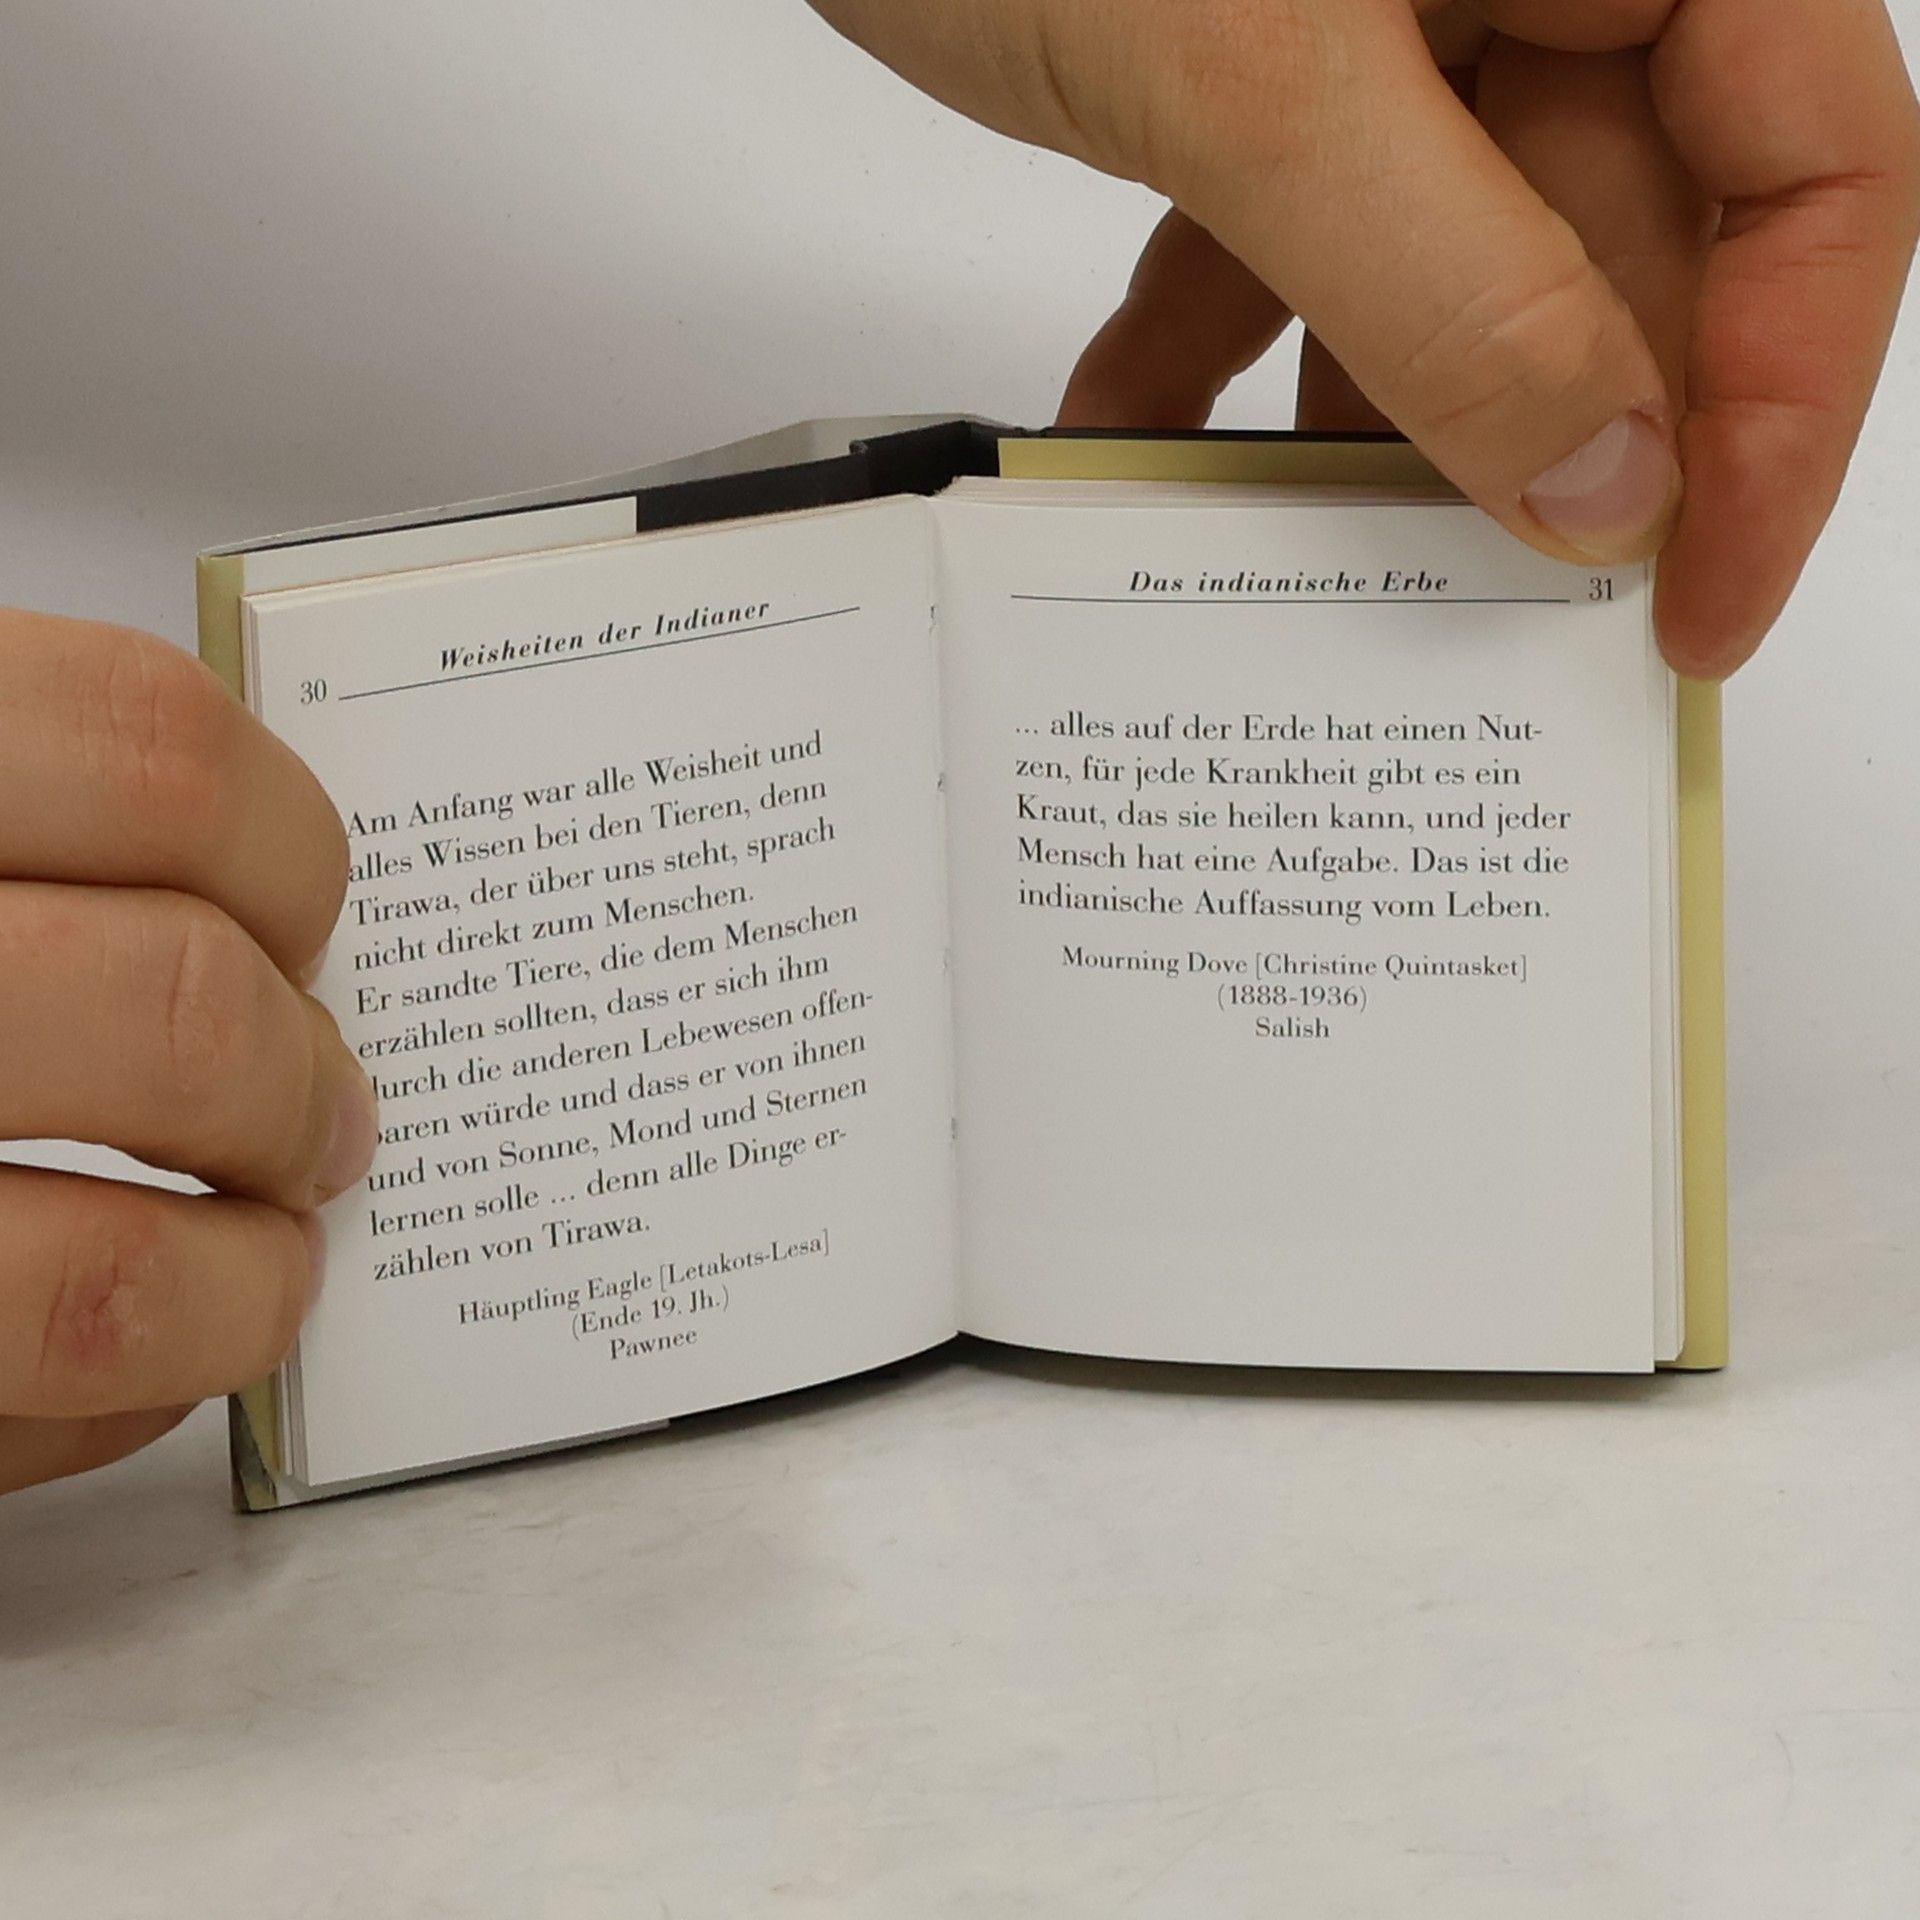 Weisheiten der Indianer
30
Am Anfang war alle Weisheit und
alles Wissen bei den Tieren, denn
Tirawa, der über uns steht, sprach
nicht direkt zum Menschen.
Er sandte Tiere, die dem Menschen
erzählen sollten, dass er sich ihm
durch die anderen Lebewesen offen-
baren würde und dass er von ihnen
und von Sonne, Mond und Sternen
lernen solle ... denn alle Dinge er-
zählen von Tirawa.
Häuptling Eagle [Letakots-Lesa]
(Ende 19. Jh.)
Pawnee
Das indianische Erbe
31
... alles auf der Erde hat einen Nut-
zen, für jede Krankheit gibt es ein
Kraut, das sie heilen kann, und jeder
Mensch hat eine Aufgabe. Das ist die
indianische Auffassung vom Leben.
Mourning Dove [Christine Quintasket]
(1888-1936)
Salish